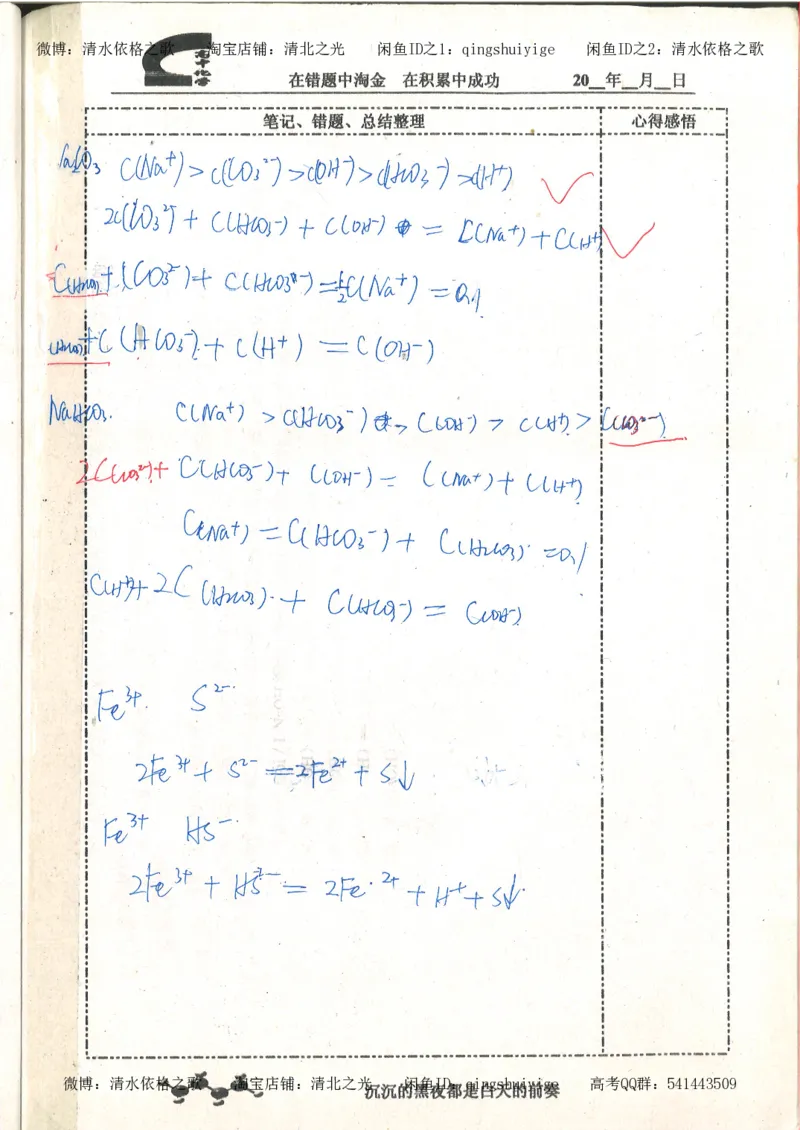 微博：清水依格之歌 淘宝店铺：清北之光 闲鱼ID之1：qingshuiyige 闲鱼ID之2：清水依格之歌
在错题中淘金 在积累中成功 20__年__月__日
笔记、错题、总结整理 心得感悟
Na₂CO₃ C(Na⁺)>C(CO₃²⁻)>C(OH⁻)>C(HCO₃⁻)>C(H⁺) ✓
2C(CO₃²⁻)+C(HCO₃⁻)+C(OH⁻)=C(Na⁺)+C(H⁺) ✓
C(H₂CO₃)+C(CO₃²⁻)+C(HCO₃⁻)=½C(Na⁺)=0.1
C(H₂CO₃)+C(HCO₃⁻)+C(H⁺)=C(OH⁻)
NaHCO₃. C(Na⁺)>C(HCO₃⁻)>C(OH⁻)>C(H⁺)>C(CO₃²⁻)
2C(CO₃²⁻)+C(HCO₃⁻)+C(OH⁻)=C(Na⁺)+C(H⁺)
C(Na⁺)=C(HCO₃⁻)+C(H₂CO₃)=0.1
C(H⁺)+2C(H₂CO₃)+C(HCO₃⁻)=C(OH⁻)
Fe³⁺. S²⁻.
2Fe³⁺+S²⁻=2Fe²⁺+S↓
Fe³⁺ HS⁻.
2Fe³⁺+HS⁻=2Fe²⁺+H⁺+S↓
微博：清水依格之歌 淘宝店铺：清北之光 闲鱼ID：qingshuiyige 高考QQ群：541443509
沉沉的黑夜都是白天的前奏